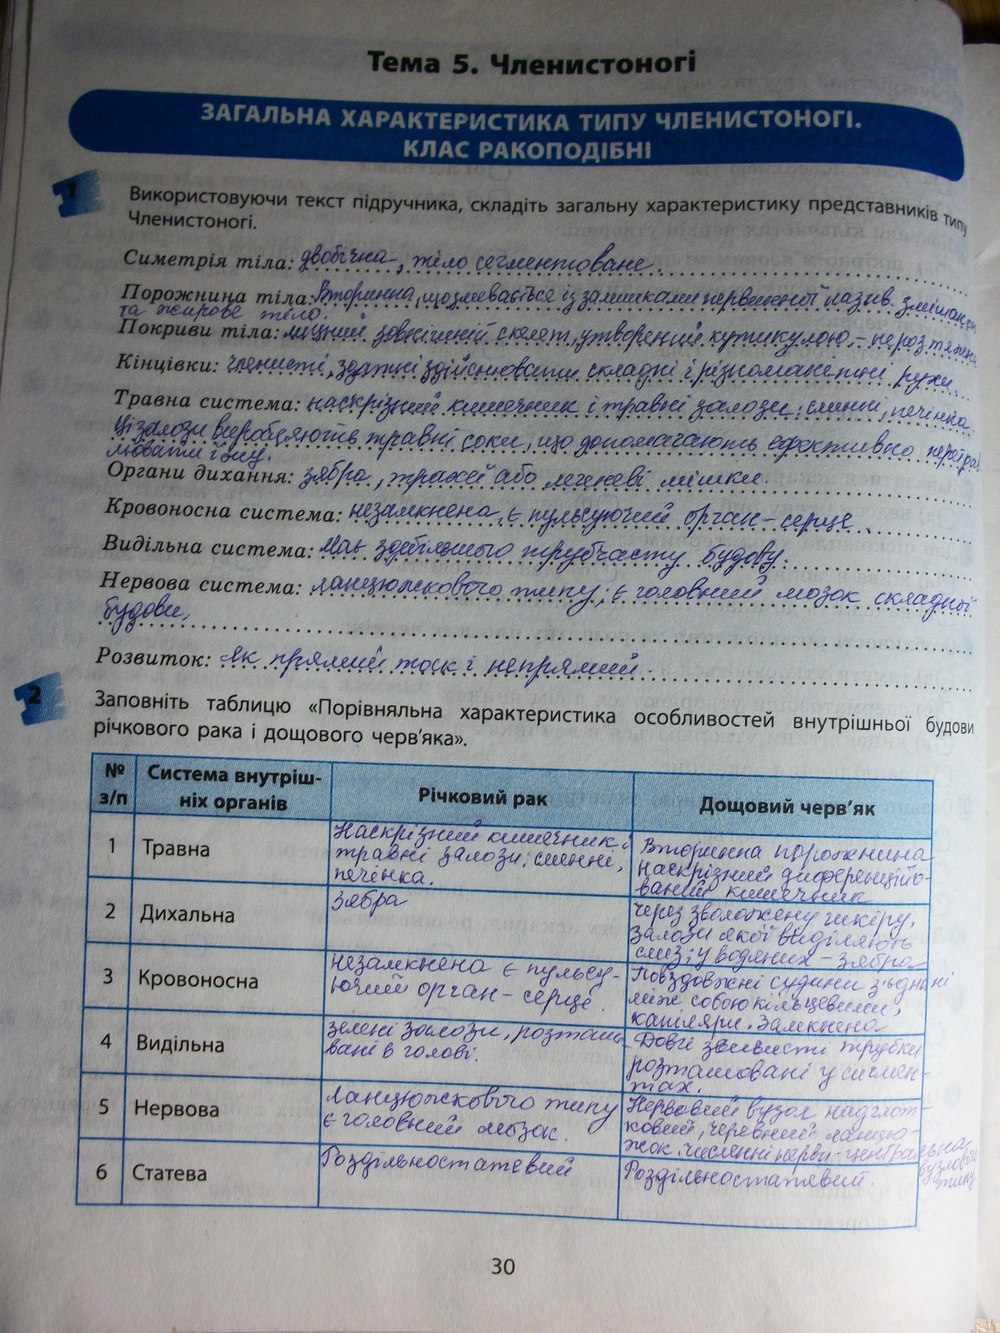 Тема 5. Членистоногі
ЗАГАЛЬНА ХАРАКТЕРИСТИКА ТИПУ ЧЛЕНИСТОНОГІ.
КЛАС РАКОПОДІБНІ
1
Використовуючи текст підручника, складіть загальну характеристику представників типу
Членистоногі.
Симетрія тіла: двобічна, тіло сегментоване.
Порожнина тіла: Вторинна, що зливається із залишками первинної назив. змішан.
та жирове тіло.
Покриви тіла: міцний зовнішній скелет, утворений кутикулою – нерозтяжн
Кінцівки: членисті, здатні здійснювати складні і різноманітні рухи.
Травна система: наскрізний кишечник і травні залози: слинні, печінка.
Ці залози виробляють травні соки, що допомагають ефективно перетрав
лювати їжу.
Органи дихання: зябра, трахеї або легеневі мішки.
Кровоносна система: незамкнена, є пульсуючий орган – серце.
Видільна система: Має здебільшого трубчасту будову.
Нервова система: ланцюжкового типу; є головний мозок складної
будови.
Розвиток: як прямий так і непрямий.
2
Заповніть таблицю «Порівняльна характеристика особливостей внутрішньої будови
річкового рака і дощового черв'яка».
№ з/п Система внутріш-
ніх органів Річковий рак Дощовий черв'як
1 Травна
Наскрізний кишечник і
травні залози: слинні,
печінка.
Вторинна порожнина
наскрізний диференційо-
ваний кишечник
2 Дихальна
Зябра
через зволожену шкіру,
залози якої виділяють
слиз; у водяних – зябра
3 Кровоносна
незамкнена є пульсу-
ючий орган – серце.
Повздовжні судини з'єднані
між собою кільцевими,
капіляри. Замкнена
4 Видільна
зелені залози, розташо
вані в голові.
Довгі звивисті трубки
розташовані у сигмен-
тах.
5 Нервова
Ланцюжкового типу
є головний мозок.
Нервовий вузол надглот-
ковий, черевний ланцю-
жок. численні нерви – центральна
вузлового
типу
6 Статева
Роздільностатевий
Роздільностатевий.
30